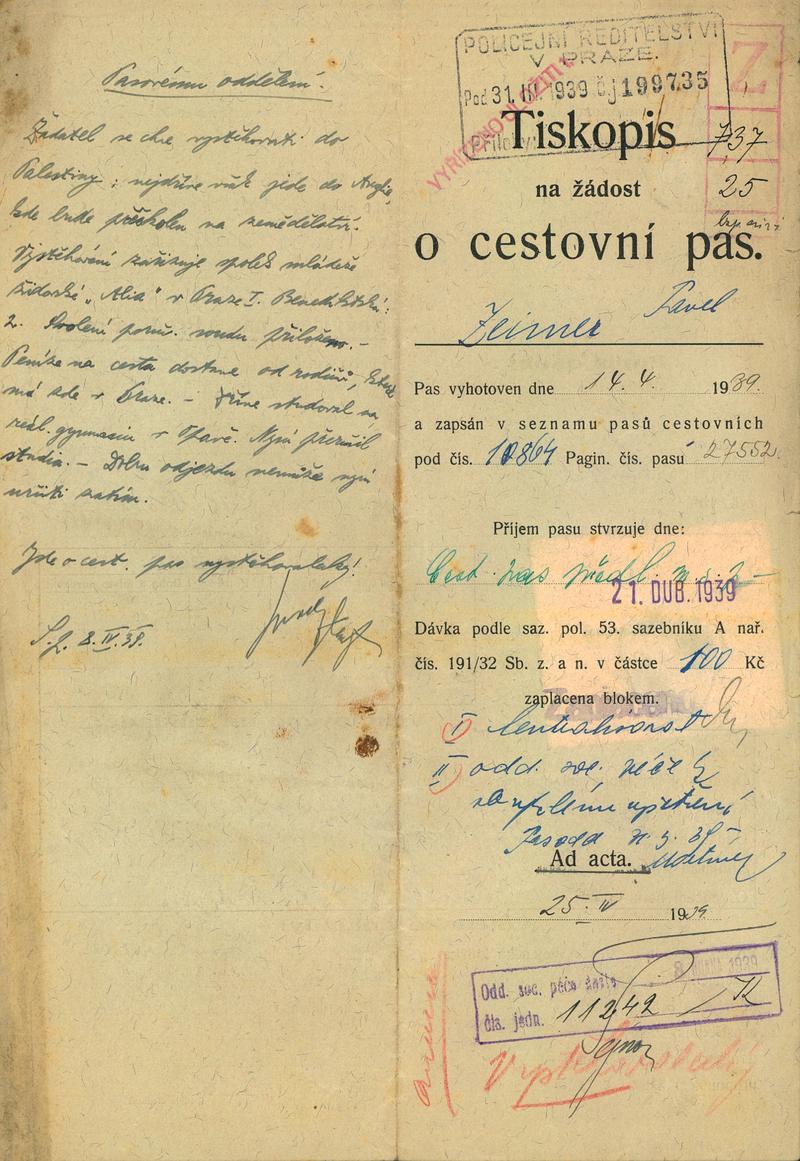 Pasovému oddělení.
Žadatel se chce vystěhovati do
Palestiny; nejdříve však jede do Anglie,
kde bude přeškolen na zemědělství.
Vystěhování zařizuje spolek mládeže
židovské „Alia" v Praze I. Benediktská
2. Svolení poruč. soudu přiloženo. –
Peníze na cestu dostane od rodičů, kteří
má zde v Praze. – Dříve studoval na
reál. gymnasiu v Opavě. Nyní přerušil
studia. – Dobu odjezdu nemůže nyní
určiti zatím.
Jde o cest. pas vystěhovalecký!
8. IV. 39.
POLICEJNÍ ŘEDITELSTVÍ
V PRAZE.
Z
Pod 31. III. 1939 čj 199735
Tiskopis
737
na žádost
25
o cestovní pas.
Zeimer Pavel
Pas vyhotoven dne 14. 4. 1939.
a zapsán v seznamu pasů cestovních
pod čís. 10864 Pagin. čís. pasu 27552.
Příjem pasu stvrzuje dne:
Cest. pas
21. DUB. 1939
Dávka podle saz. pol. 53. sazebníku A nař.
čís. 191/32 Sb. z. a n. v částce 100 Kč
zaplacena blokem.
I)
II) odd. soc. péče
Ad acta.
25. IV 1939
Odd. soc. péče došlo 1939
čís. jedn. 11242
Vystěhovalecký